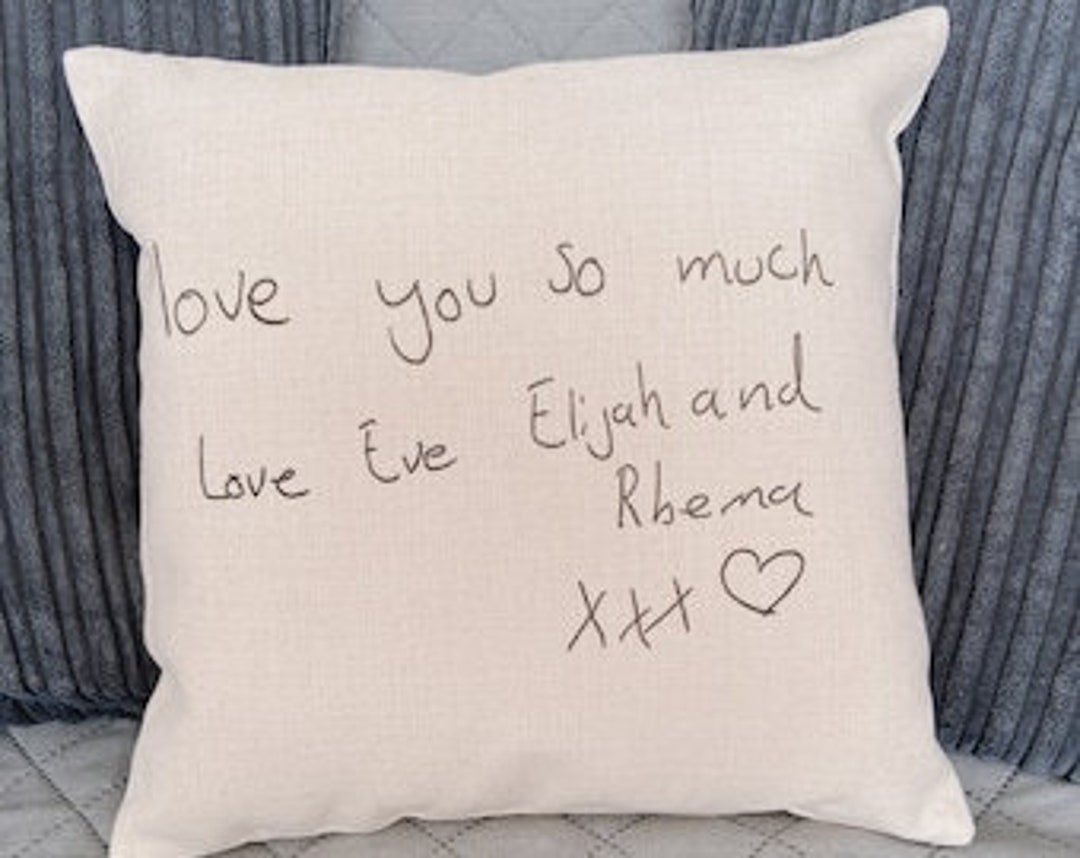 love you so much
Love Eve Elijah and
Rhema
xxx ♡